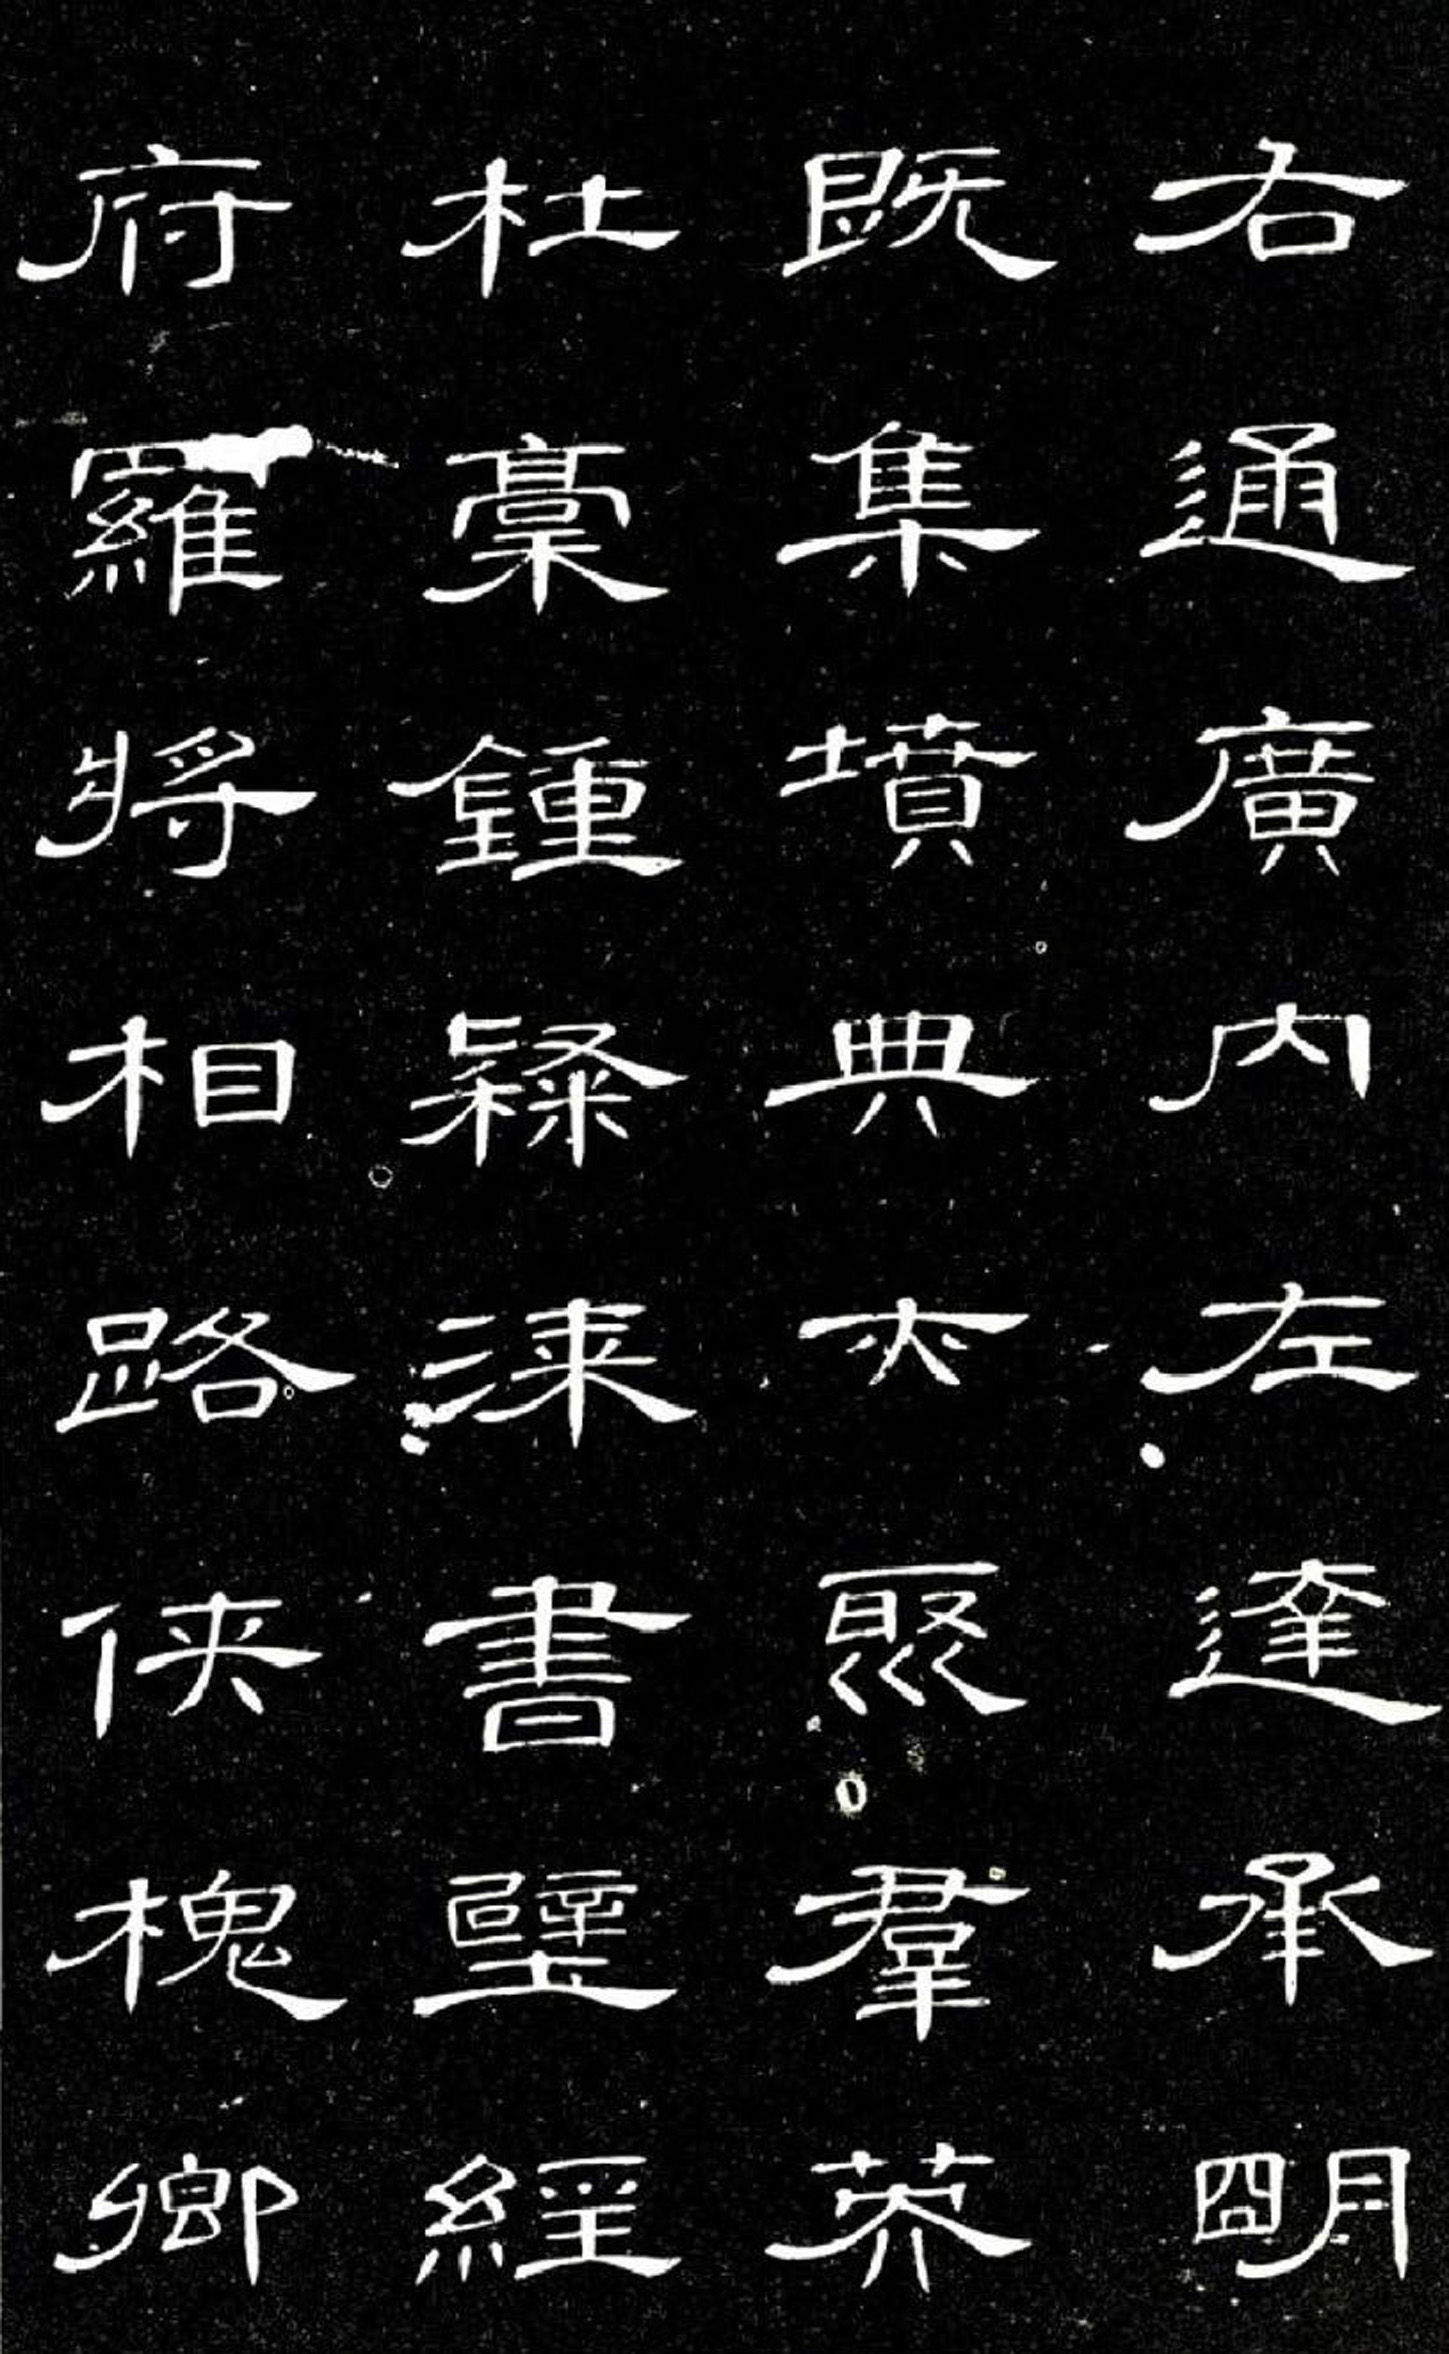 右通廣內左達承明
既集墳典亦聚群英
杜稾鍾隸漆書壁經
府羅將相路俠槐卿